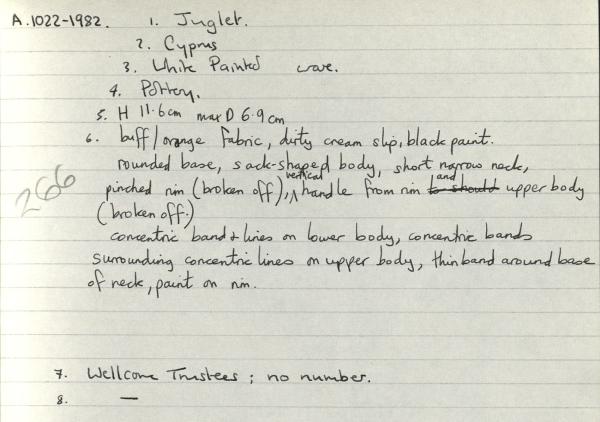 A.1022-1982. 1. Juglet.
2. Cyprus
3. White Painted ware.
4. Pottery.
5. H 11.6cm max D 6.9cm
6. buff/orange fabric, dirty cream slip, black paint.
rounded base, sack-shaped body, short narrow neck,
266
pinched rim (broken off), vertical handle from rim to should and upper body
(broken off.)
concentric band & lines on lower body, concentric bands
surrounding concentric lines on upper body, thin band around base
of neck, paint on rim.
7. Wellcome Trustees ; no number.
8. —